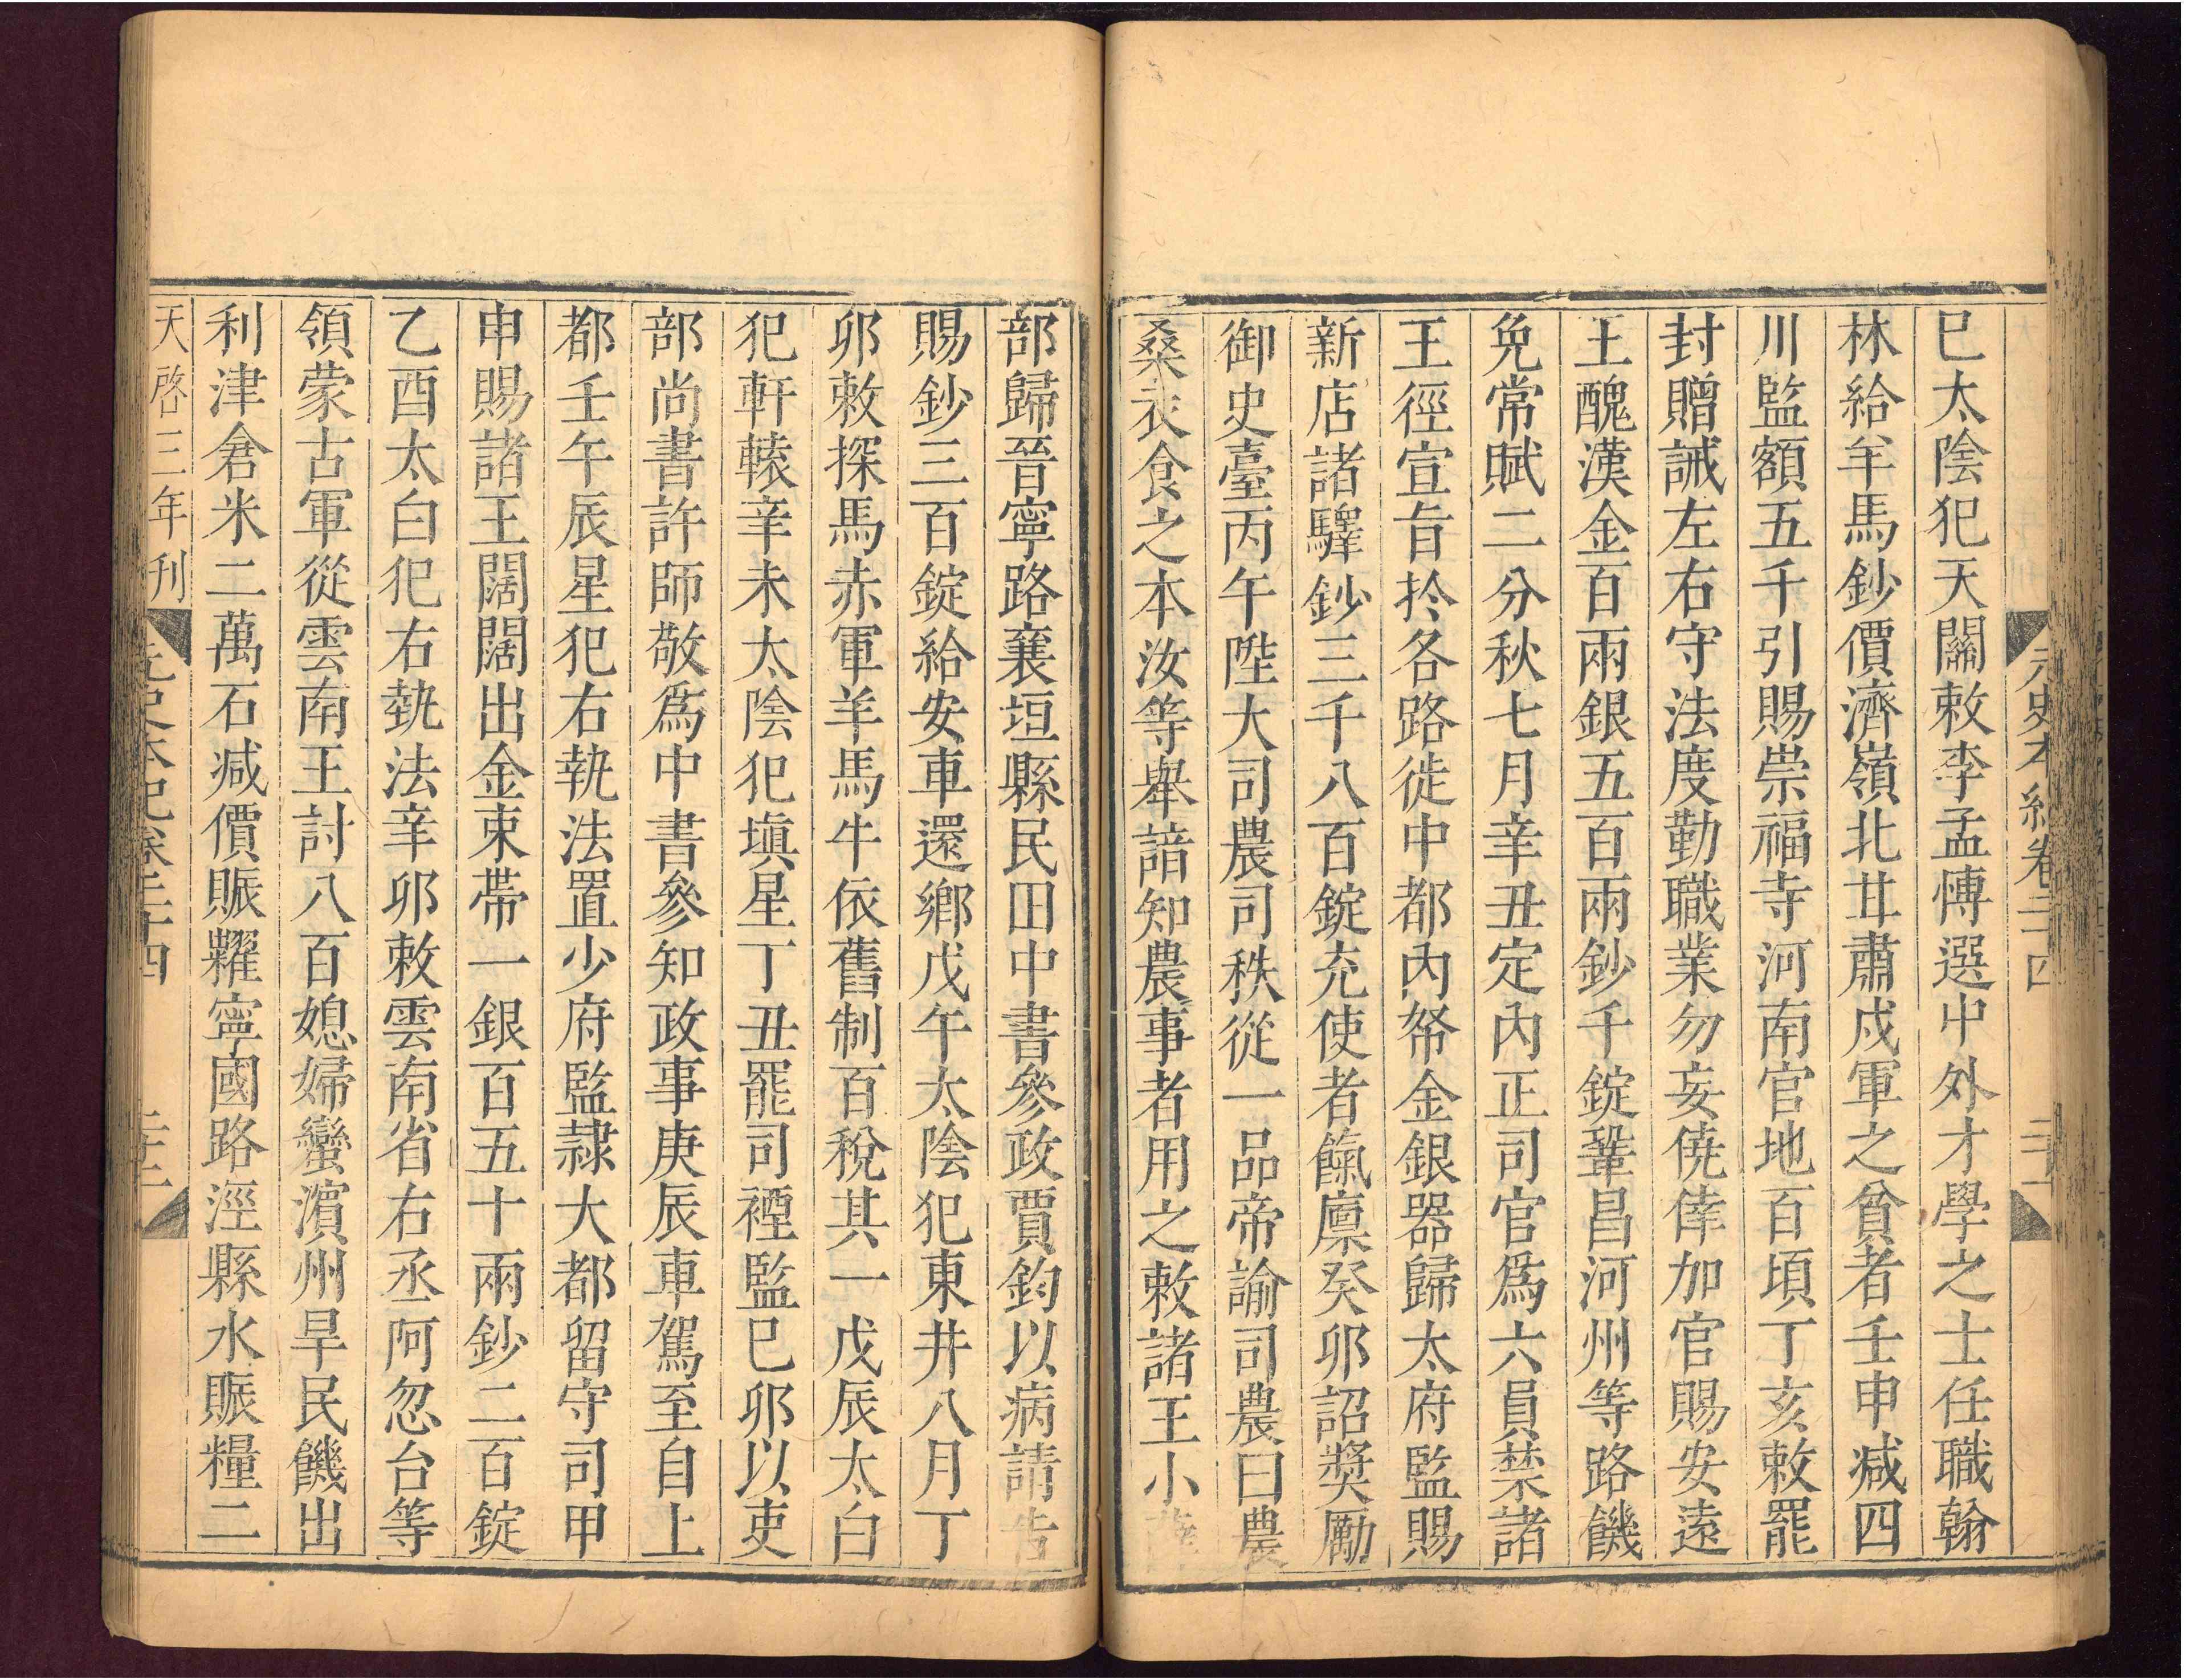 元史本紀卷二十四
巳太陰犯天關敕李孟博選中外才學之士任職翰
林給羊馬鈔價濟嶺北甘肅戍軍之貧者壬申減四
川監額五千引賜崇福寺河南官地百頃丁亥敕罷
封贈誡左右守法度勤職業勿妄僥倖加官賜安遠
王醜漢金百兩銀五百兩鈔千錠鞏昌河州等路饑
免常賦二分秋七月辛丑定內正司官爲六員禁諸
王徑宣旨於各路徙中都內帑金銀器歸太府監賜
新店諸驛鈔三千八百錠充使者餼廩癸卯詔獎勵
御史臺丙午陞大司農司秩從一品帝諭司農曰農
桑衣食之本汝等舉諳知農事者用之敕諸王小薛
部歸晉寧路襄垣縣民田中書參政賈鈞以病請告
賜鈔三百錠給安車還鄉戊午太陰犯東井八月丁
卯敕探馬赤軍羊馬牛依舊制百稅其一戊辰太白
犯軒轅辛未太陰犯塡星丁丑罷司禋監巳卯以吏
部尚書許師敬爲中書參知政事庚辰車駕至自上
都壬午辰星犯右執法置少府監隷大都留守司甲
申賜諸王闊闊出金束帶一銀百五十兩鈔二百錠
乙酉太白犯右執法辛卯敕雲南省右丞阿忽台等
領蒙古軍從雲南王討八百媳婦蠻濱州旱民饑出
利津倉米二萬石減價賑糶寧國路涇縣水賑糧二
天啓三年刊 元史本紀卷二十四